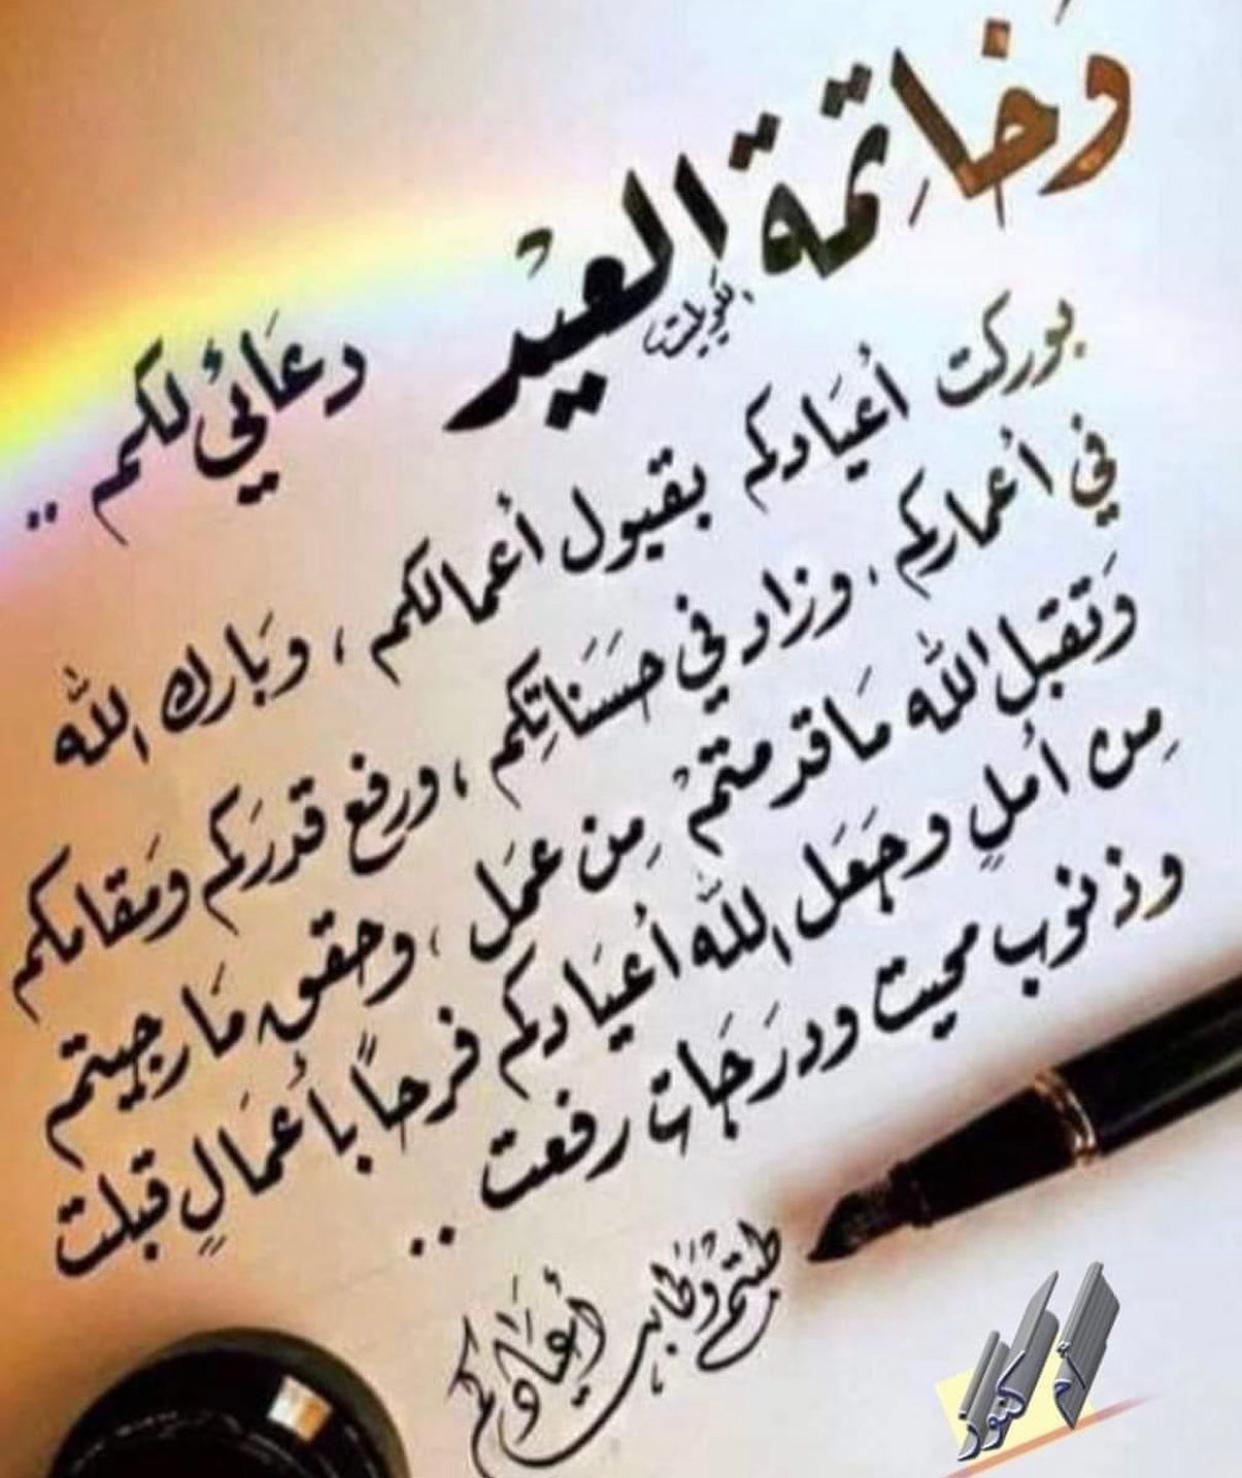 وَخَاتِمة العيْد دعَائي لكم ..
بوركت أعيَادكم بقبول أعمالكم ، وبَارك الله
في أعماركم ، وزاد في حسَنَاتِكم ، ورفع قدرَكم ومَقامكم
وَتقبل الله مَا قدمتمْ مِن عمَل ، وحقق مَا رجيتم
مِن أملٍ وجَعَل الله أعيَادكم فرحاً بأعمَالٍ قبلت
وذنوب محيت ودرَجَات رفعت ..
طبتم وطابت أعيَادكم